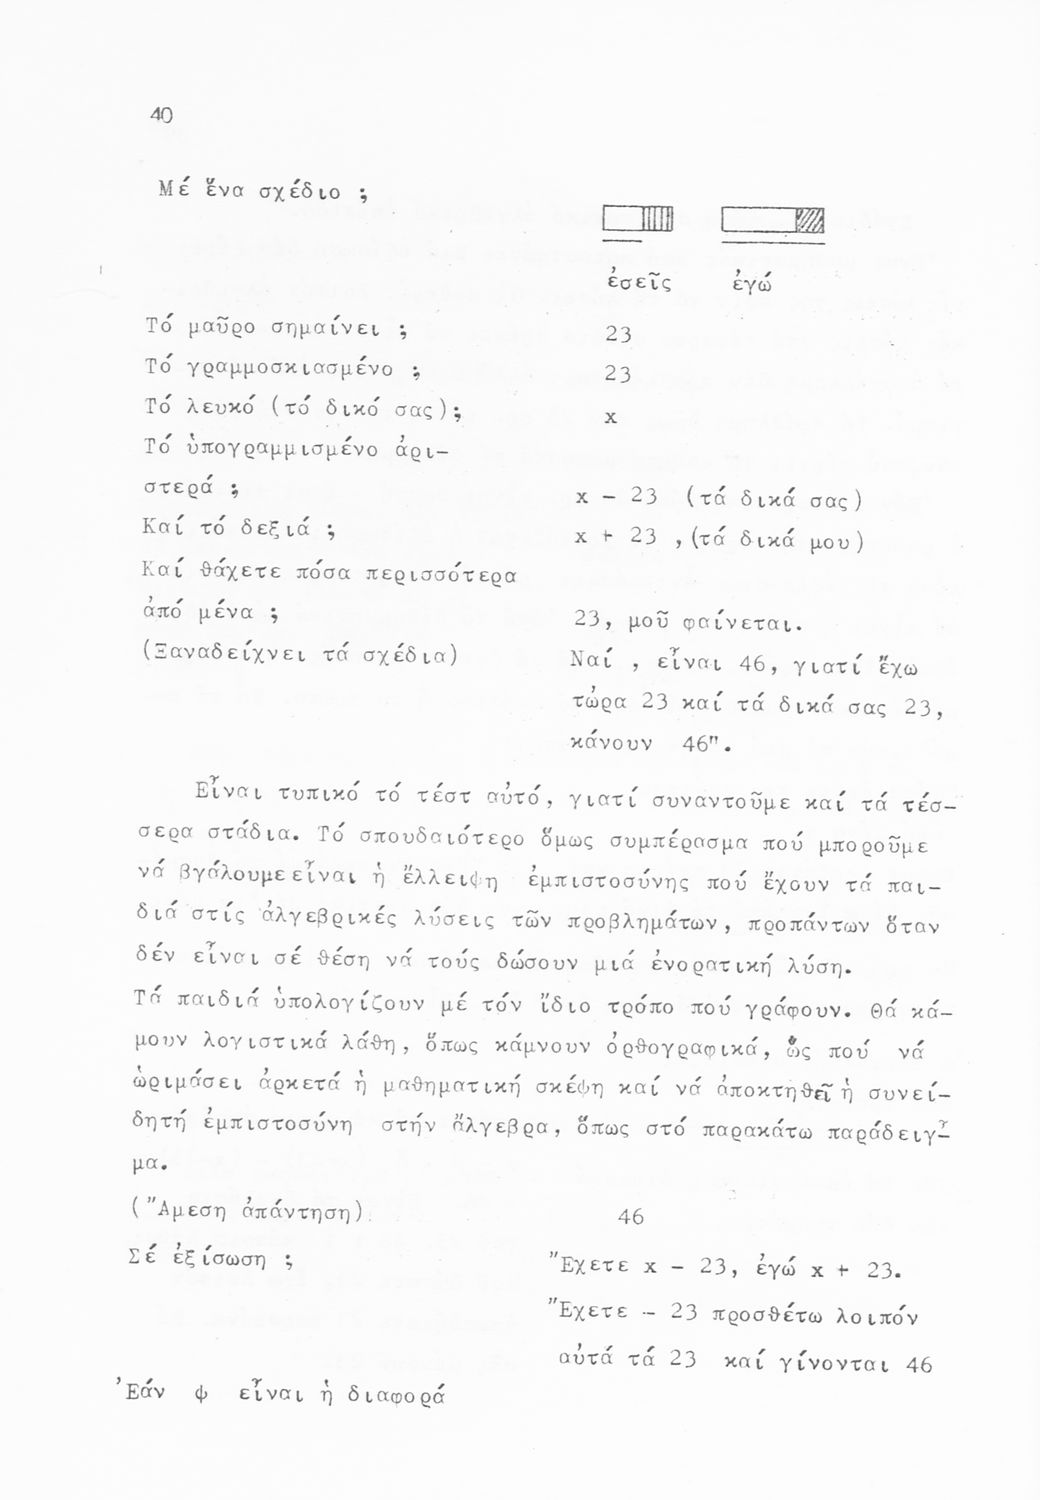 40
Μέ ἕνα σχέδιο ;
ἐσεῖς ἐγώ
Τό μαῦρο σημαίνει ; 23
Τό γραμμοσκιασμένο ; 23
Τό λευκό (τό δικό σας); x
Τό ὑπογραμμισμένο ἀρι-
στερά ; x - 23 (τά δικά σας)
Καί τό δεξιά ; x + 23 , (τά δικά μου)
Καί θάχετε πόσα περισσότερα
ἀπό μένα ; 23, μοῦ φαίνεται.
(Ξαναδείχνει τά σχέδια) Ναί , εἶναι 46, γιατί ἔχω
τώρα 23 καί τά δικά σας 23,
κάνουν 46".
Εἶναι τυπικό τό τέστ αὐτό, γιατί συναντοῦμε καί τά τέσ-
σερα στάδια. Τό σπουδαιότερο ὅμως συμπέρασμα πού μποροῦμε
νά βγάλουμε εἶναι ἡ ἔλλειψη ἐμπιστοσύνης πού ἔχουν τά παι-
διά στίς ἀλγεβρικές λύσεις τῶν προβλημάτων, προπάντων ὅταν
δέν εἶναι σέ θέση νά τούς δώσουν μιά ἐνορατική λύση.
Τά παιδιά ὑπολογίζουν μέ τόν ἴδιο τρόπο πού γράφουν. Θά κά-
μουν λογιστικά λάθη, ὅπως κάμνουν ὀρθογραφικά, ὥς πού νά
ὡριμάσει ἀρκετά ἡ μαθηματική σκέψη καί νά ἀποκτηθεῖ ἡ συνεί-
δητή ἐμπιστοσύνη στήν ἄλγεβρα, ὅπως στό παρακάτω παράδειγ-
μα.
("Αμεση ἀπάντηση) 46
Σέ ἐξίσωση ; "Εχετε x - 23, ἐγώ x + 23.
"Εχετε - 23 προσθέτω λοιπόν
αὐτά τά 23 καί γίνονται 46
Ἐάν ψ εἶναι ἡ διαφορά